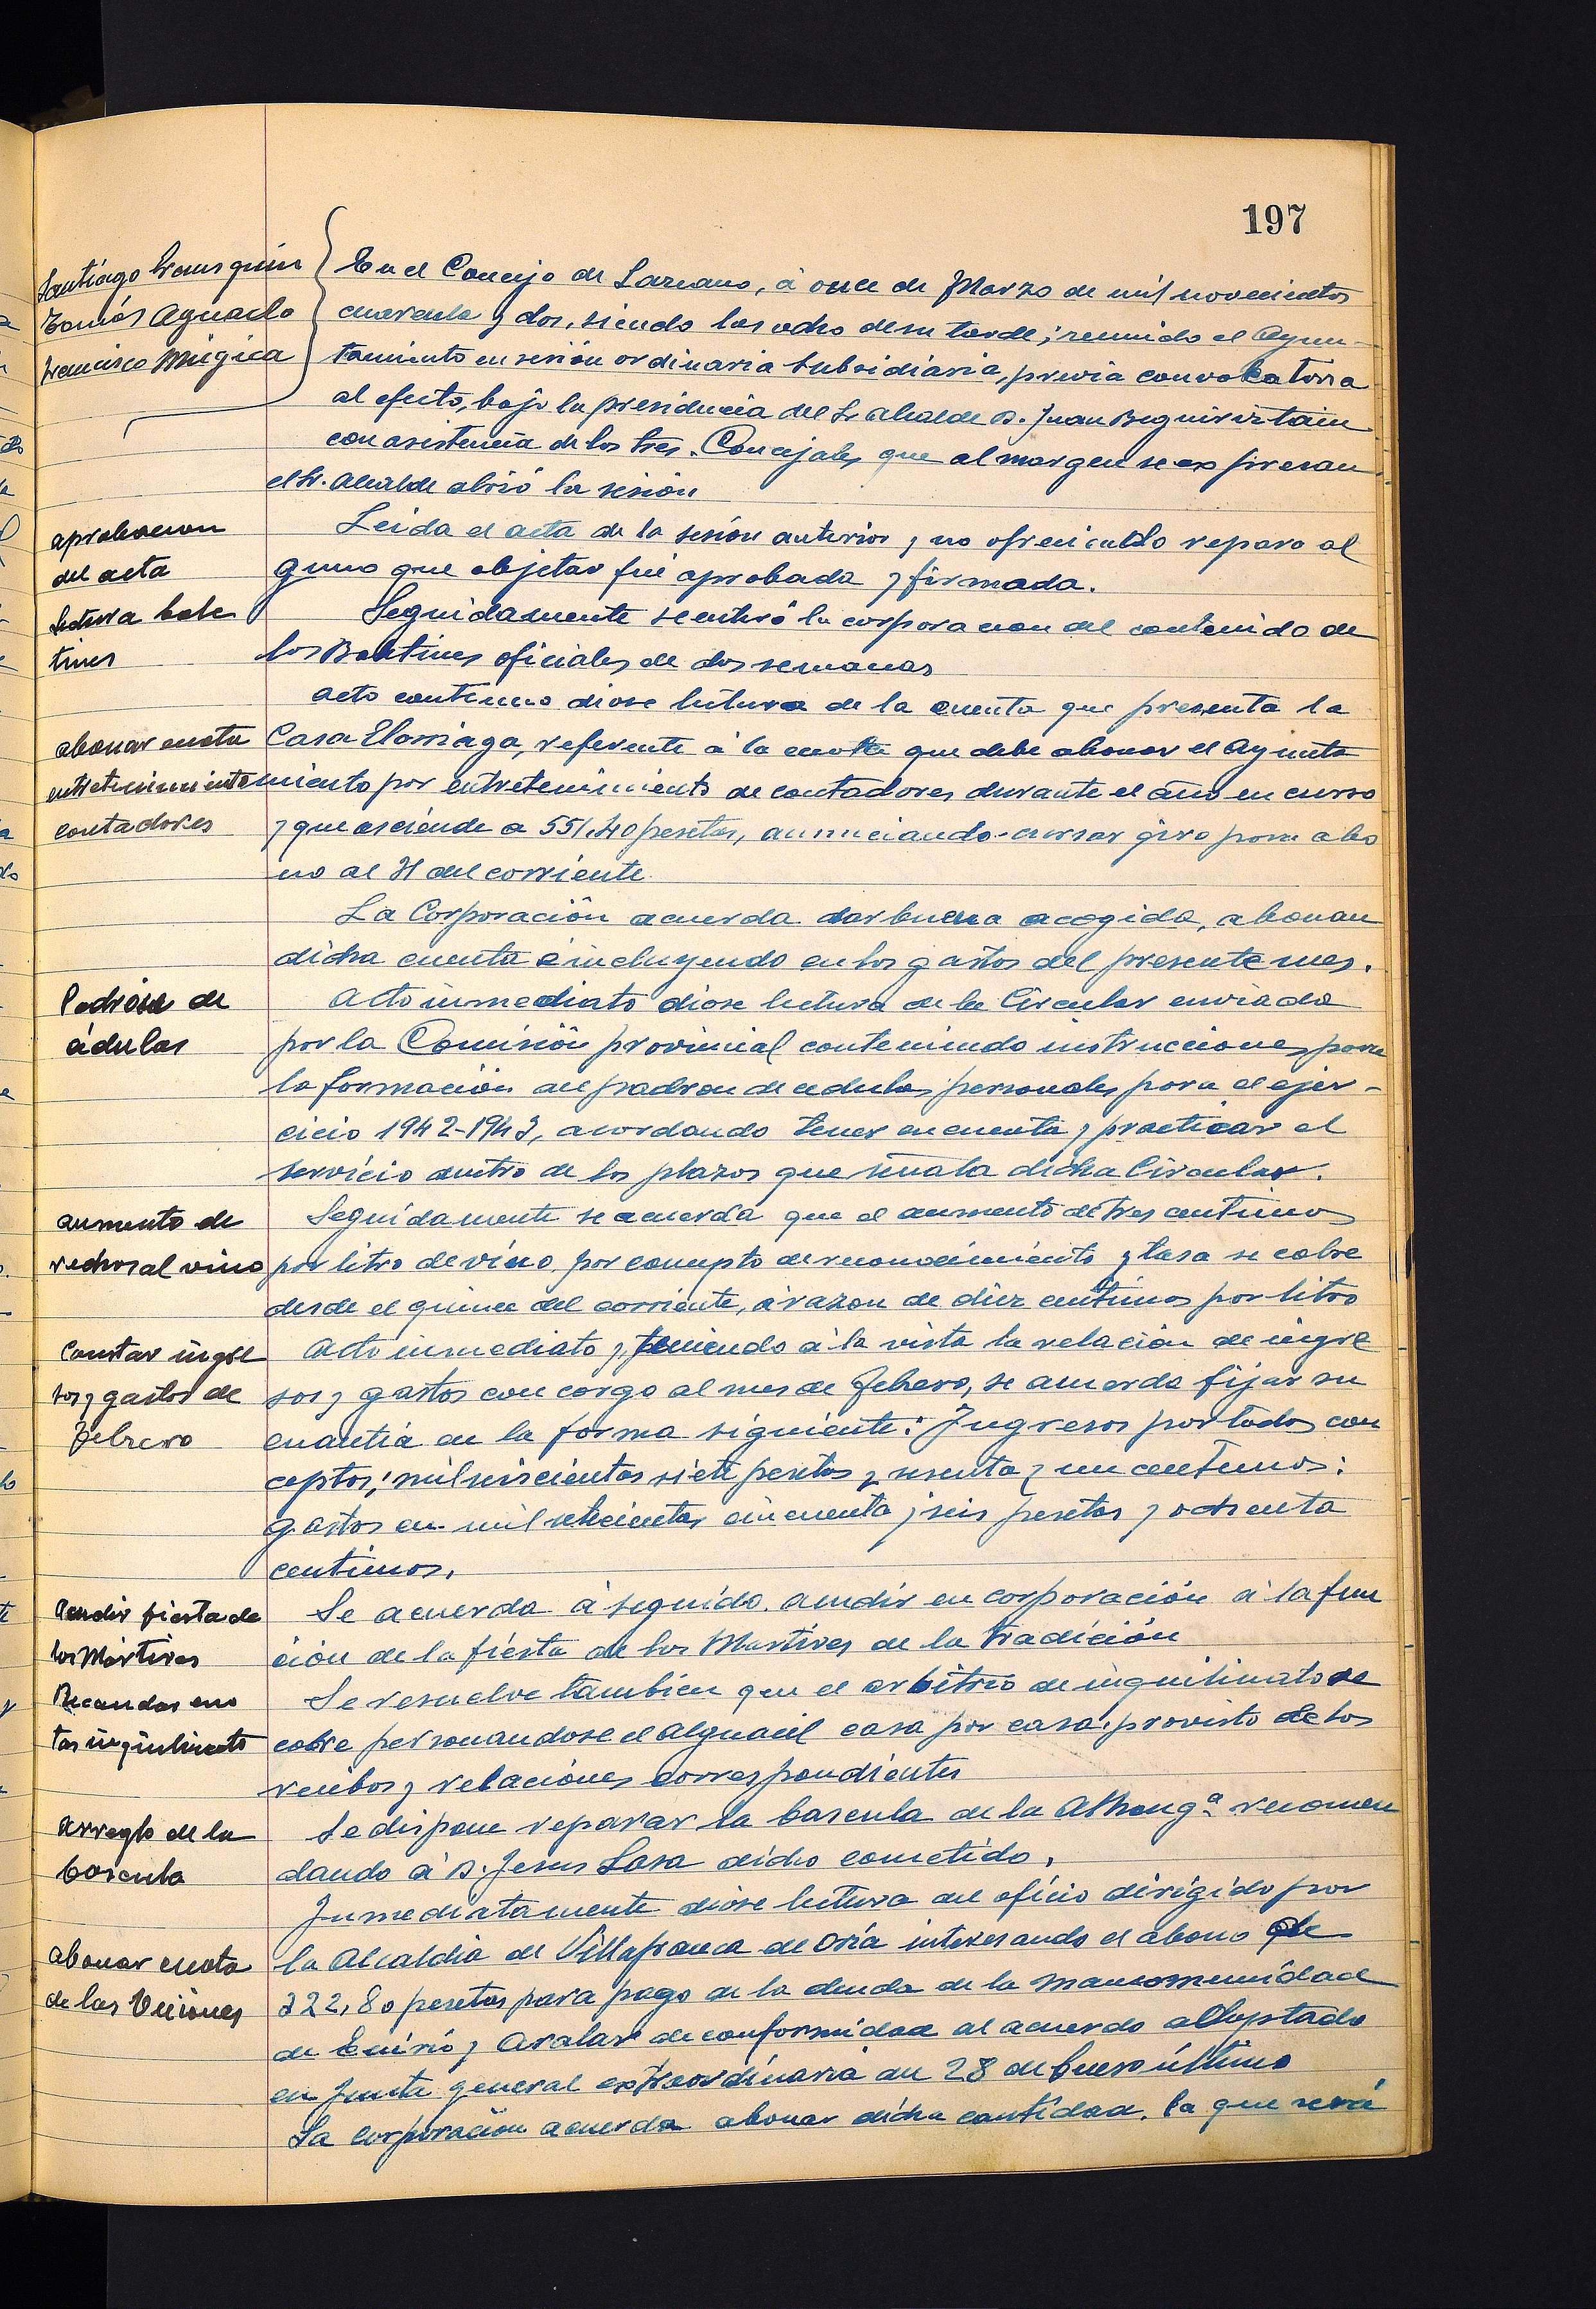 197
Santiago Irausquin
Tomás Aguado
Francisco Múgica
En el Concejo de Lazcano, á once de Marzo de mil novecientos
cuarenta y dos, siendo las ocho de su tarde; reunido el Ayun-
tamiento en sesión ordinaria subsidiaria, previa convocatoria
al efecto, bajo la presidencia del Sr alcalde D. Juan Beguiristain
con asistencia de los tres. Concejales que al margen se expresan
el Sr. Alcalde abrió la sesión
aprobacion
del acta
Leida el acta de la sesión anterior y no ofreciendo reparo al
guno que objetar fué aprobada y firmada.
Lectura bole
tines
Seguidamente se enteró la corporacion del contenido de
los Boletines oficiales de dos semanas
acto continuo diose lectura de la cuenta que presenta la
abonar cuota
entretenimiento
contadores
Casa Elorriaga, referente á la cuota que debe abonar el Ayunta
miento por entretenimiento de contadores durante el año en curso
y que asciende a 551,40 pesetas, anunciando cursar giro para abo
no al 31 del corriente
La Corporación acuerda dar buena acogida, abonan
dicha cuenta é incluyendo en los gastos del presente mes.
Padrón de
cédulas
Acto inmediato diose lectura de la Circular enviada
por la Comisión provincial conteniendo instrucciones para
la formación del padron de cedulas personales para el ejer-
cicio 1942-1943, acordando tener en cuenta y practicar el
servicio dentro de los plazos que señala dicha Circular.
aumento de
rechos al vino
Seguidamente se acuerda que el aumento de tres centimos
por litro de vino por concepto de reconocimiento y tasa se cobre
desde el quince del corriente, á razon de diez centimos por litro
Constar ingre
sos y gastos de
Febrero
Acto inmediato y, teniendo á la vista la relación de ingre
sos y gastos con cargo al mes de Febrero, se acuerda fijar su
cuantia en la forma siguiente: Ingresos por todos con
ceptos; mil seiscientas siete pesetas y sesenta y un centimos:
gastos en mil setecientas cincuenta y seis pesetas y ochenta
centimos.
Acudir fiesta de
los Mártires
Se acuerda á seguido acudir en corporación á la fun
ción de la fiesta de los Martires de la Tradición
Recaudar cuo
tas inquilinato
Se resuelve tambien que el arbitrio de inquilinato se
cobre personandose el Alguacil casa por casa, provisto de los
recibos y relaciones correspondientes
Arreglo de la
bascula
Se dispone reparar la bascula de la Alhongª recomen
dando á D. Jesus Lasa dicho cometido.
Inmediatamente diose lectura del oficio dirigido por
abonar cuota
de las Uniones
la Alcaldia de Villafranca de Oria interesando el abono de
322,80 pesetas para pago de la deuda de la mancomunidad
de Enirio y Aralar de conformidad al acuerdo adoptado
en Junta general extraordinaria del 28 de Enero último
La corporación acuerda abonar dicha cantidad, la que será